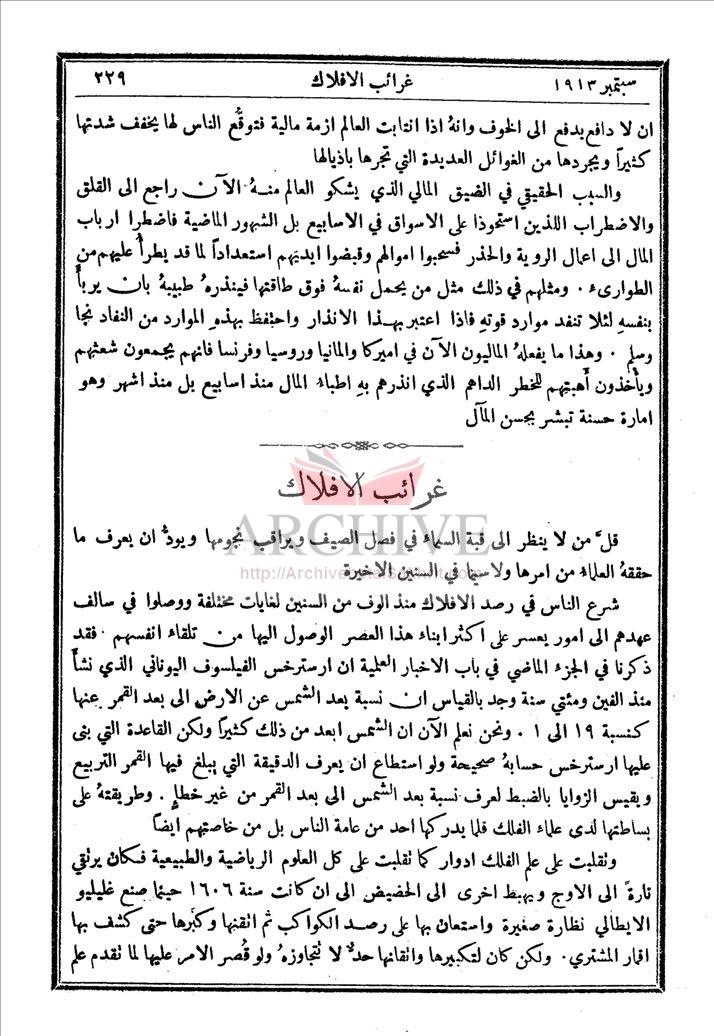 سبتمبر ١٩١٣ غرائب الافلاك ٢٢٩
ان لا دافع يدفع الى الخوف وانهُ اذا انتابت العالم ازمة مالية فتوقُّع الناس لها يخفف شدتها
كثيراً ويجردها من الغوائل العديدة التي تجرها باذيالها
والسبب الحقيقي في الضيق المالي الذي يشكو العالم منهُ الآن راجع الى القلق
والاضطراب اللذين استحوذا على الاسواق في الاسابيع بل الشهور الماضية فاضطرا ارباب
المال الى اعمال الروية والحذر فسحبوا اموالهم وقبضوا ايديهم استعداداً لما قد يطرأُ عليهم من
الطوارىء . ومثلهم في ذلك مثل من يحمل نفسهُ فوق طاقتها فينذرهُ طبيبهُ بان يربأَ
بنفسهِ لئلا تنفد موارد قوتهِ فاذا اعتبر بهذا الانذار واحتفظ بهذهِ الموارد من النفاد نجا
وسلم . وهذا ما يفعلهُ الماليون الآن في اميركا والمانيا وروسيا وفرنسا فانهم يجمعون شعثهم
ويأخذون أُهبتهم للخطر الداهم الذي انذرهم بهِ اطباء المال منذ اسابيع بل منذ اشهر وهو
امارة حسنة تبشر بحسن المآل
غرائب الافلاك
ARCHIVE
قلَّ من لا ينظر الى قبة السماء في فصل الصيف ويراقب نجومها ويودُّ ان يعرف ما
حققهُ العلماء من امرها ولا سيما في السنين الاخيرة
http://Archivebeta.Sakhrit.com
شرع الناس في رصد الافلاك منذ الوف من السنين لغايات مختلفة ووصلوا في سالف
عهدهم الى امور يعسر على اكثر ابناء هذا العصر الوصول اليها من تلقاء انفسهم . فقد
ذكرنا في الجزء الماضي في باب الاخبار العلمية ان ارسترخس الفيلسوف اليوناني الذي نشأَ
منذ الفين ومئتي سنة وجد بالقياس ان نسبة بعد الشمس عن الارض الى بعد القمر عنها
كنسبة ١٩ الى ١ . ونحن نعلم الآن ان الشمس ابعد من ذلك كثيراً ولكن القاعدة التي بنى
عليها ارسترخس حسابهُ صحيحة ولو استطاع ان يعرف الدقيقة التي يبلغ فيها القمر التربيع
ويقيس الزوايا بالضبط لعرف نسبة بعد الشمس الى بعد القمر من غير خطإٍ . وطريقتهُ على
بساطتها لدى علماء الفلك قلما يدركها احد من عامة الناس بل من خاصتهم ايضاً
وتقلبت على علم الفلك ادوار كما تقلبت على كل العلوم الرياضية والطبيعية فكان يرتقي
تارةً الى الاوج ويهبط اخرى الى الحضيض الى ان كانت سنة ١٦٠٦ حينما صنع غليليو
الايطالي نظارة صغيرة واستعان بها على رصد الكواكب ثم اتقنها وكبَّرها حتى كشف بها
اقمار المشتري . ولكن كان لتكبيرها واتقانها حدٌّ لا تتجاوزهُ ولو قُصر الامر عليها لما تقدم علم